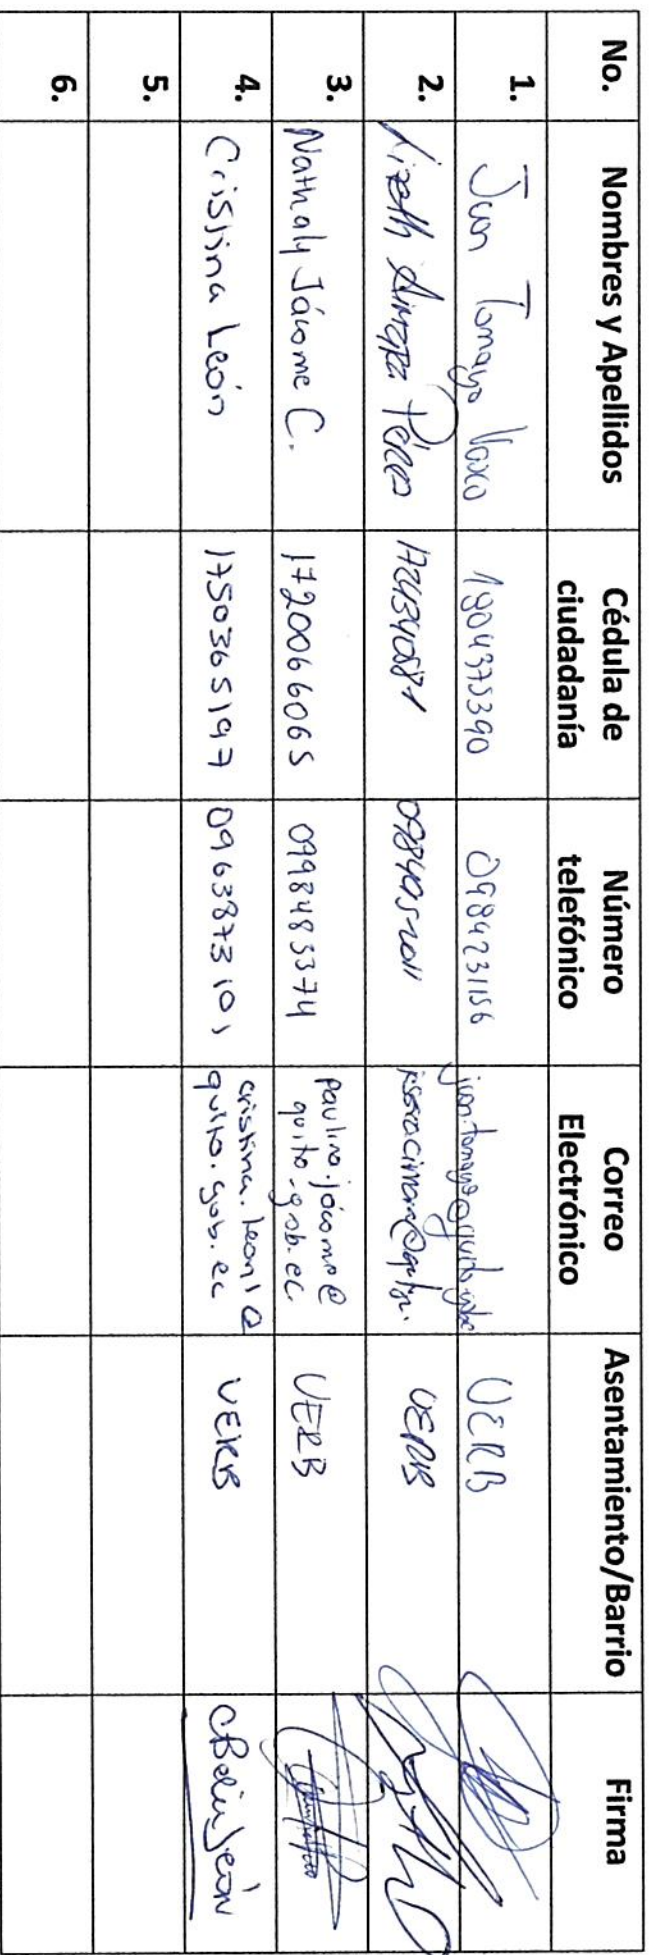 No. Nombres y Apellidos Cédula de ciudadanía Número telefónico Correo Electrónico Asentamiento/Barrio Firma
1. Juan Tamayo 1804375390 0984231156 UERB
2. Lizeth Pérez UERB
3. Nathaly Jácome C. 1720066065 0998483374 paulina.jácome@ quito.gob.ec UERB
4. Cristina León 1750365197 0963873101 cristina.leon1@ quito.gob.ec UERB
5.
6.